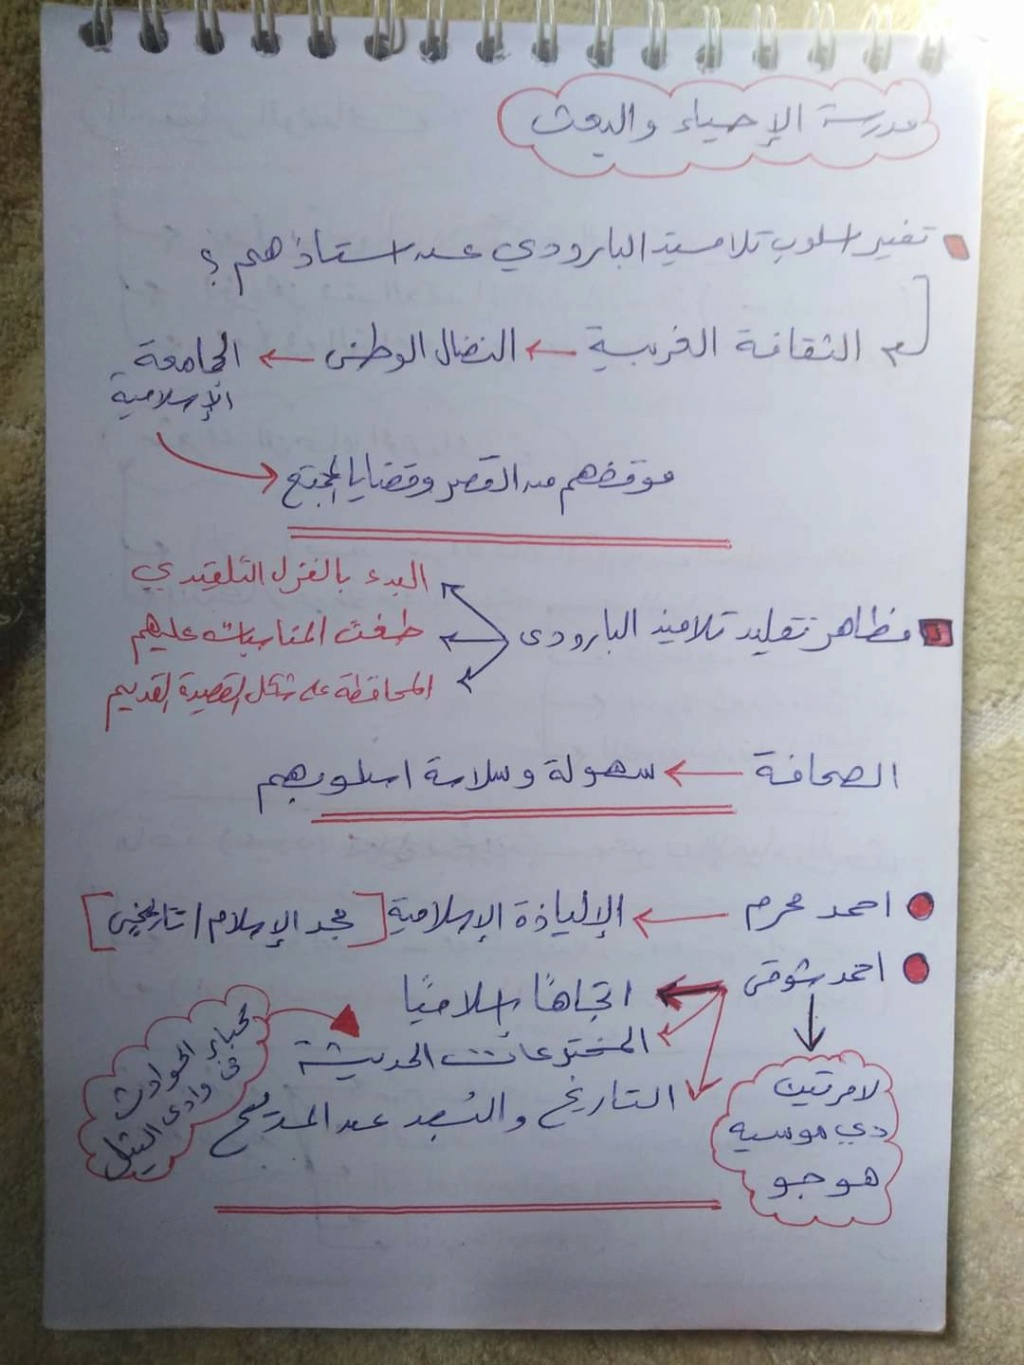 مدرسة الإحياء والبعث
تغير اسلوب تلاميذ البارودي عن استاذهم ؟
الثقافة الغربية ← النضال الوطنى ← الجامعة
الإسلامية
موقفهم من القصر وقضايا المجتمع
البدء بالغزل التقليدي
مظاهر تقليد تلاميذ البارودى
طغت المناسبات عليهم
المحافظة على شكل القصيدة القديم
الصحافة ← سهولة وسلاسة اسلوبهم
احمد محرم ← الإلياذة الإسلامية [مجد الإسلام / تاريخي]
احمد شوقى
اتجاهًا إسلاميًا
المخترعات الحديثة
التاريخ والبُعد عن المديح
كبار الحوادث
فى وادى النيل
لامرتين
دي موسيه
هوجو